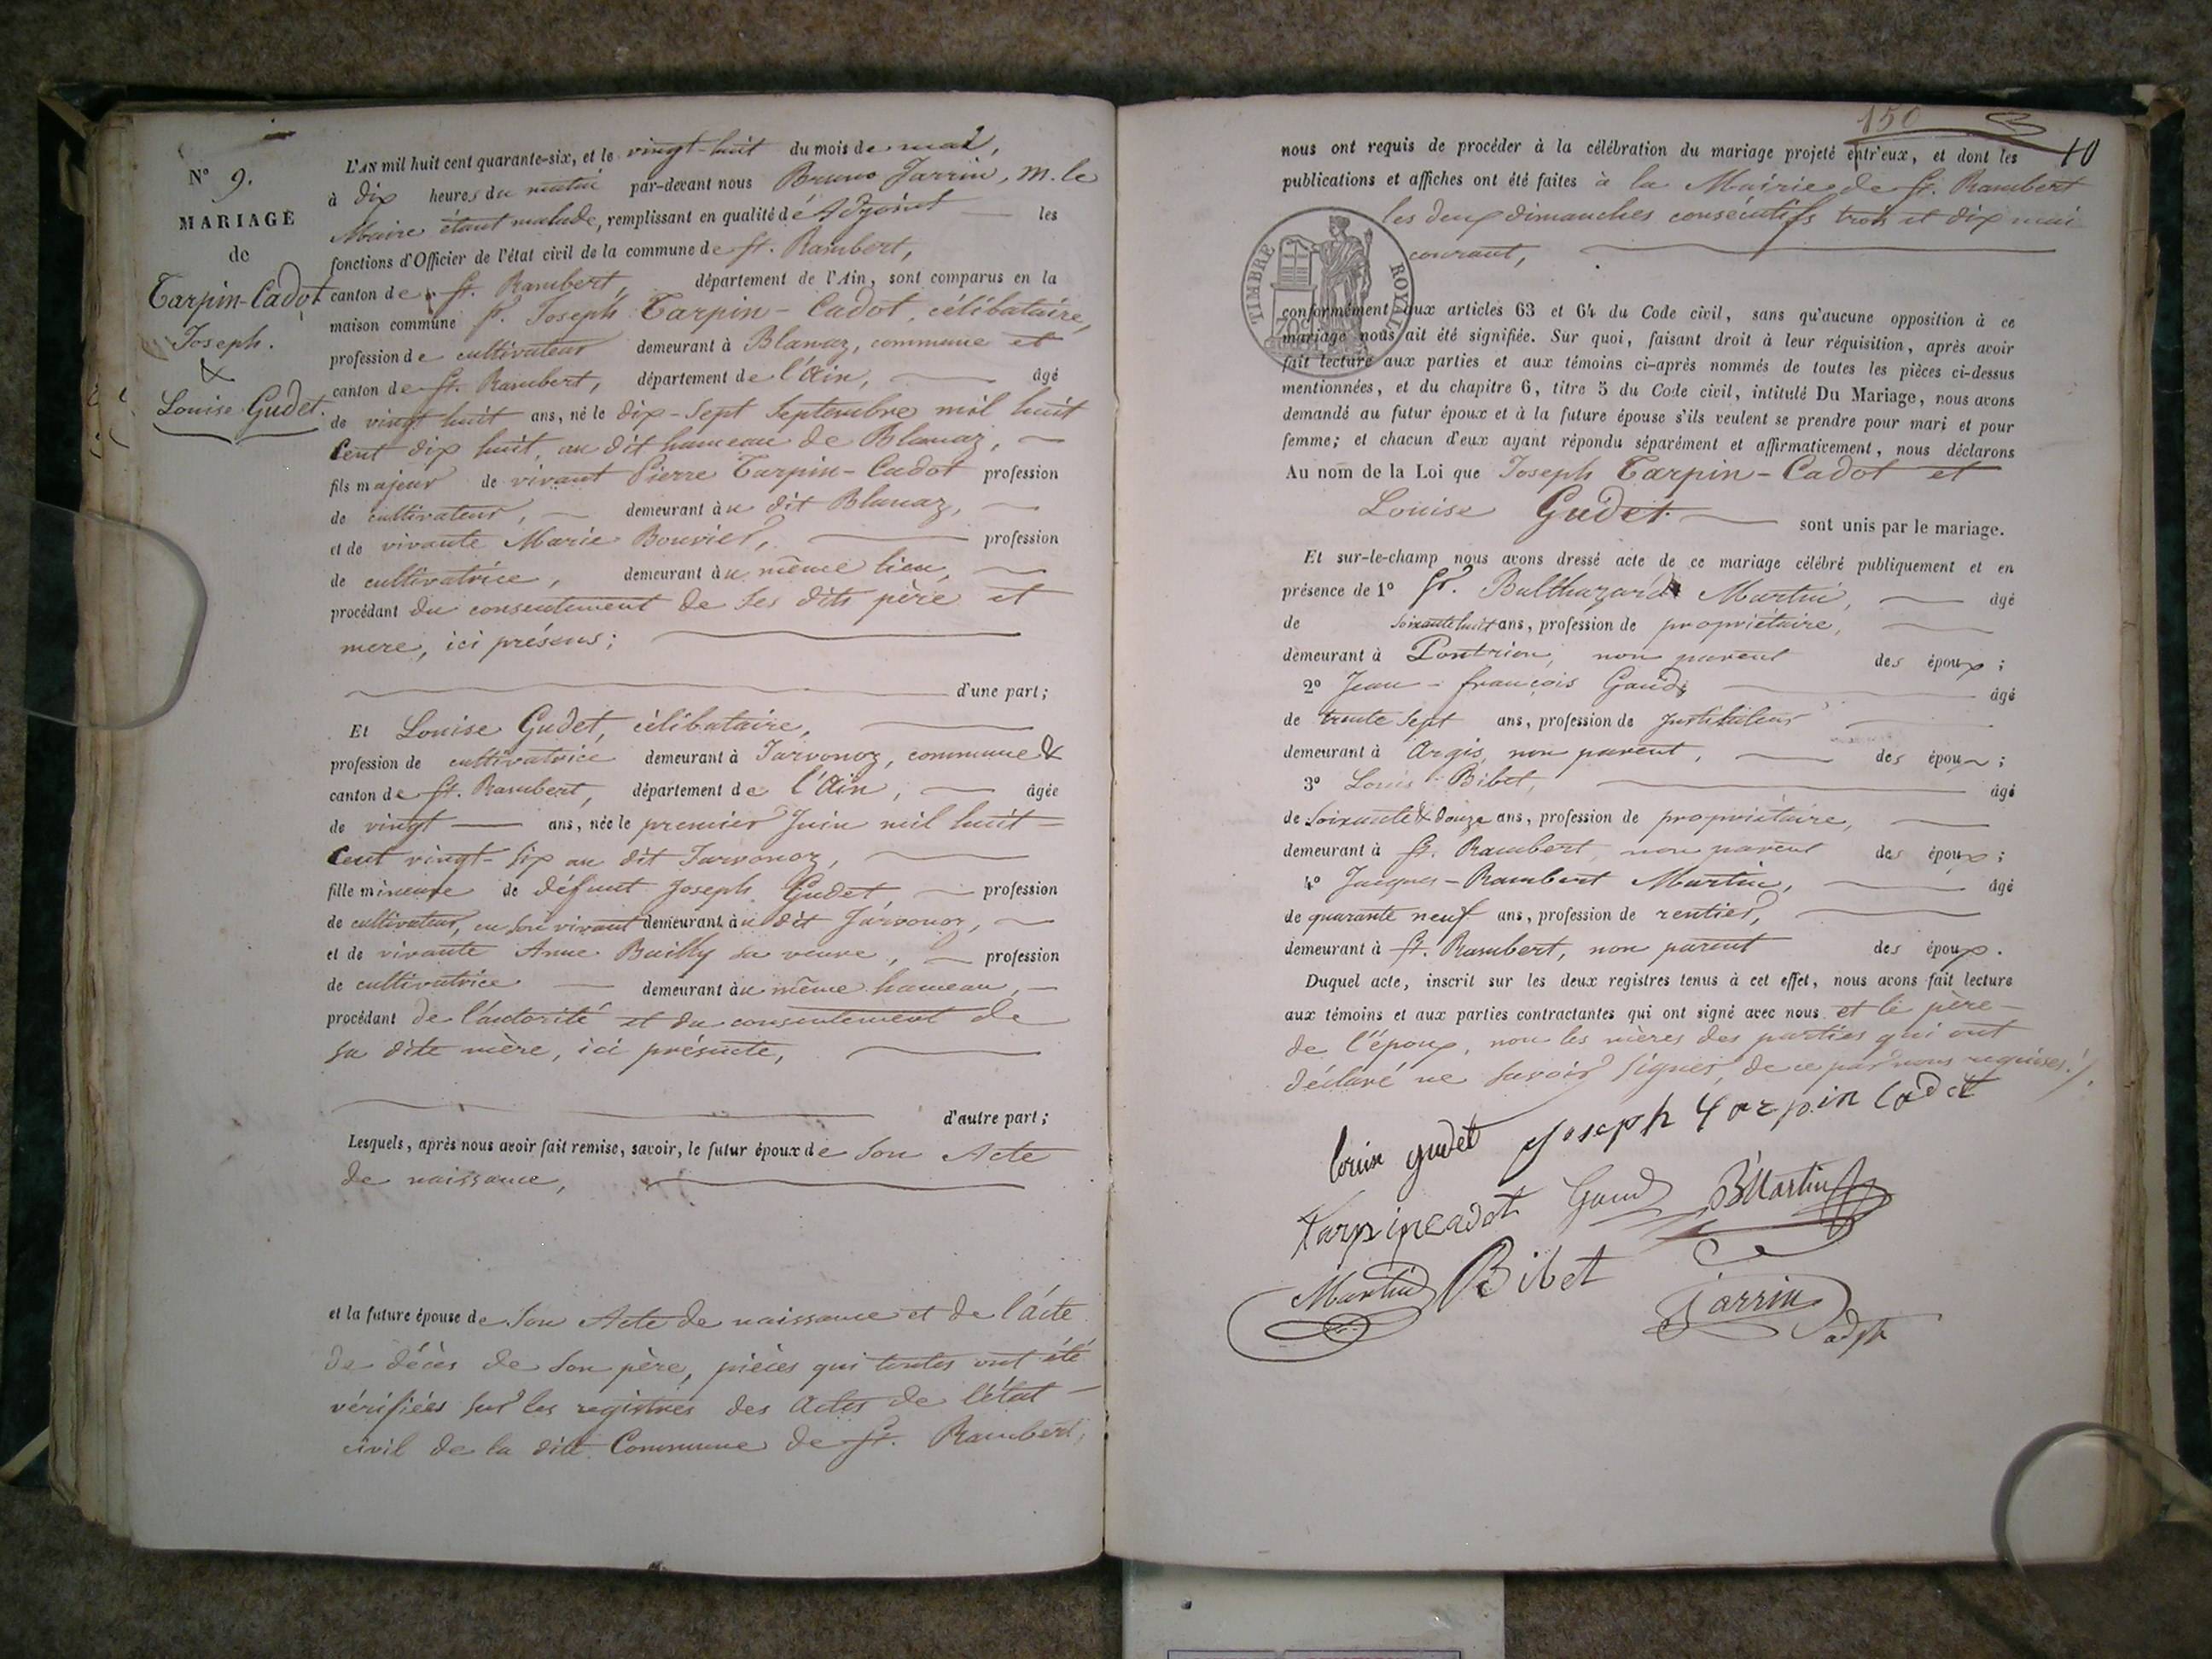 N° 9.
MARIAGE
de
Tarpin-Cadot
Joseph.
&
Louise Gudet.
L'AN mil huit cent quarante-six, et le vingt-huit du mois de mai,
à dix heures du matin par-devant nous Bruno Jarrin, M. le
Maire étant malade, remplissant en qualité d'Adjoint les
fonctions d'Officier de l'état civil de la commune de St. Rambert,
canton de St. Rambert, département de l'Ain, sont comparus en la
maison commune Sr. Joseph Tarpin-Cadot, célibataire,
profession de cultivateur demeurant à Blanaz, commune et
canton de St. Rambert, département de l'Ain, âgé
de vingt huit ans, né le dix-sept Septembre mil huit
Cent dix huit, au dit hameau de Blanaz,
fils majeur de vivant Pierre Tarpin-Cadot profession
de cultivateur, demeurant au dit Blanaz,
et de vivante Marie Bouvier, profession
de cultivatrice, demeurant au même lieu,
procédant du consentement de ses dits père et
mere, ici présens;
d'une part;
Et Louise Gudet, célibataire,
profession de cultivatrice demeurant à Javornoz, commune &
canton de St. Rambert, département de l'Ain, âgée
de vingt ans, née le premier Juin mil huit
Cent vingt-six au dit Javornoz,
fille mineure de défunt Joseph Gudet, profession
de cultivateur, en son vivant demeurant au dit Javornoz,
et de vivante Anne Bailly sa veuve, profession
de cultivatrice demeurant au même hameau,
procédant de l'autorité et du consentement de
sa dite mère, ici présente,
d'autre part;
Lesquels, après nous avoir fait remise, savoir, le futur époux de son Acte
de naissance,
et la future épouse de son Acte de naissance et de l'acte
de décès de son père, pièces qui toutes ont été
vérifiées sur les registres des actes de l'état
civil de la dite Commune de St. Rambert,
150
10
nous ont requis de procéder à la célébration du mariage projeté entr'eux, et dont les
publications et affiches ont été faites à la Mairie de St. Rambert
les deux dimanches consécutifs trois et dix mai
courant,
TIMBRE ROYAL
70c
conformément aux articles 63 et 64 du Code civil, sans qu'aucune opposition à ce
mariage nous ait été signifiée. Sur quoi, faisant droit à leur réquisition, après avoir
fait lecture aux parties et aux témoins ci-après nommés de toutes les pièces ci-dessus
mentionnées, et du chapitre 6, titre 5 du Code civil, intitulé Du Mariage, nous avons
demandé au futur époux et à la future épouse s'ils veulent se prendre pour mari et pour
femme; et chacun d'eux ayant répondu séparément et affirmativement, nous déclarons
Au nom de la Loi que Joseph Tarpin-Cadot et
Louise Gudet sont unis par le mariage.
Et sur-le-champ nous avons dressé acte de ce mariage célébré publiquement et en
présence de 1° Sr. Balthazard Martin, âgé
de soixante huit ans, profession de propriétaire,
demeurant à non parent des époux;
2° Jean-françois Gaud, âgé
de trente sept ans, profession de Instituteur
demeurant à Argis, non parent, des époux;
3° Louis Bibet, âgé
de soixante & douze ans, profession de propriétaire,
demeurant à St. Rambert, non parent des époux;
4° Jacques-Rambert Martin, âgé
de quarante neuf ans, profession de rentier,
demeurant à St. Rambert, non parent des époux.
Duquel acte, inscrit sur les deux registres tenus à cet effet, nous avons fait lecture
aux témoins et aux parties contractantes qui ont signé avec nous et le père
de l'époux, non les mères des parties qui ont
déclaré ne savoir signer, de ce par nous requises./.
louise gudet Joseph tarpin Cadot
tarpincadot Gaud BMartin
Martin Bibet
Jarrin
adjt